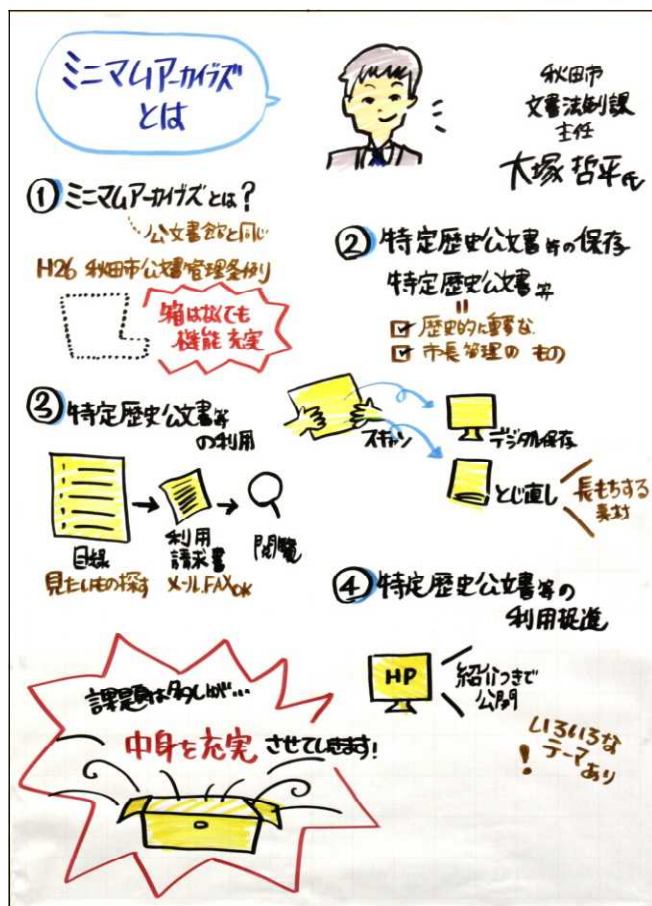 ミニマムアーカイブズ
とは
秋田市
文書法制課
主任
大塚 哲平氏
① ミニマムアーカイブズとは?
公文書館と同じ
H26 秋田市公文書管理条例
箱はなくても
機能充実
② 特定歴史公文書等の保存
特定歴史公文書等
=
☑ 歴史的に重要な
☑ 市長管理のもの
スキャン
デジタル保存
とじ直し
長もちする
素材
③ 特定歴史公文書等
の利用
目録
見たいもの探す
利用
請求書
メール、FAXOK
閲覧
④ 特定歴史公文書等の
利用促進
HP
紹介つきで
公開
いろいろな
テーマ
あり!
課題は多しだが…
中身を充実させていきます!